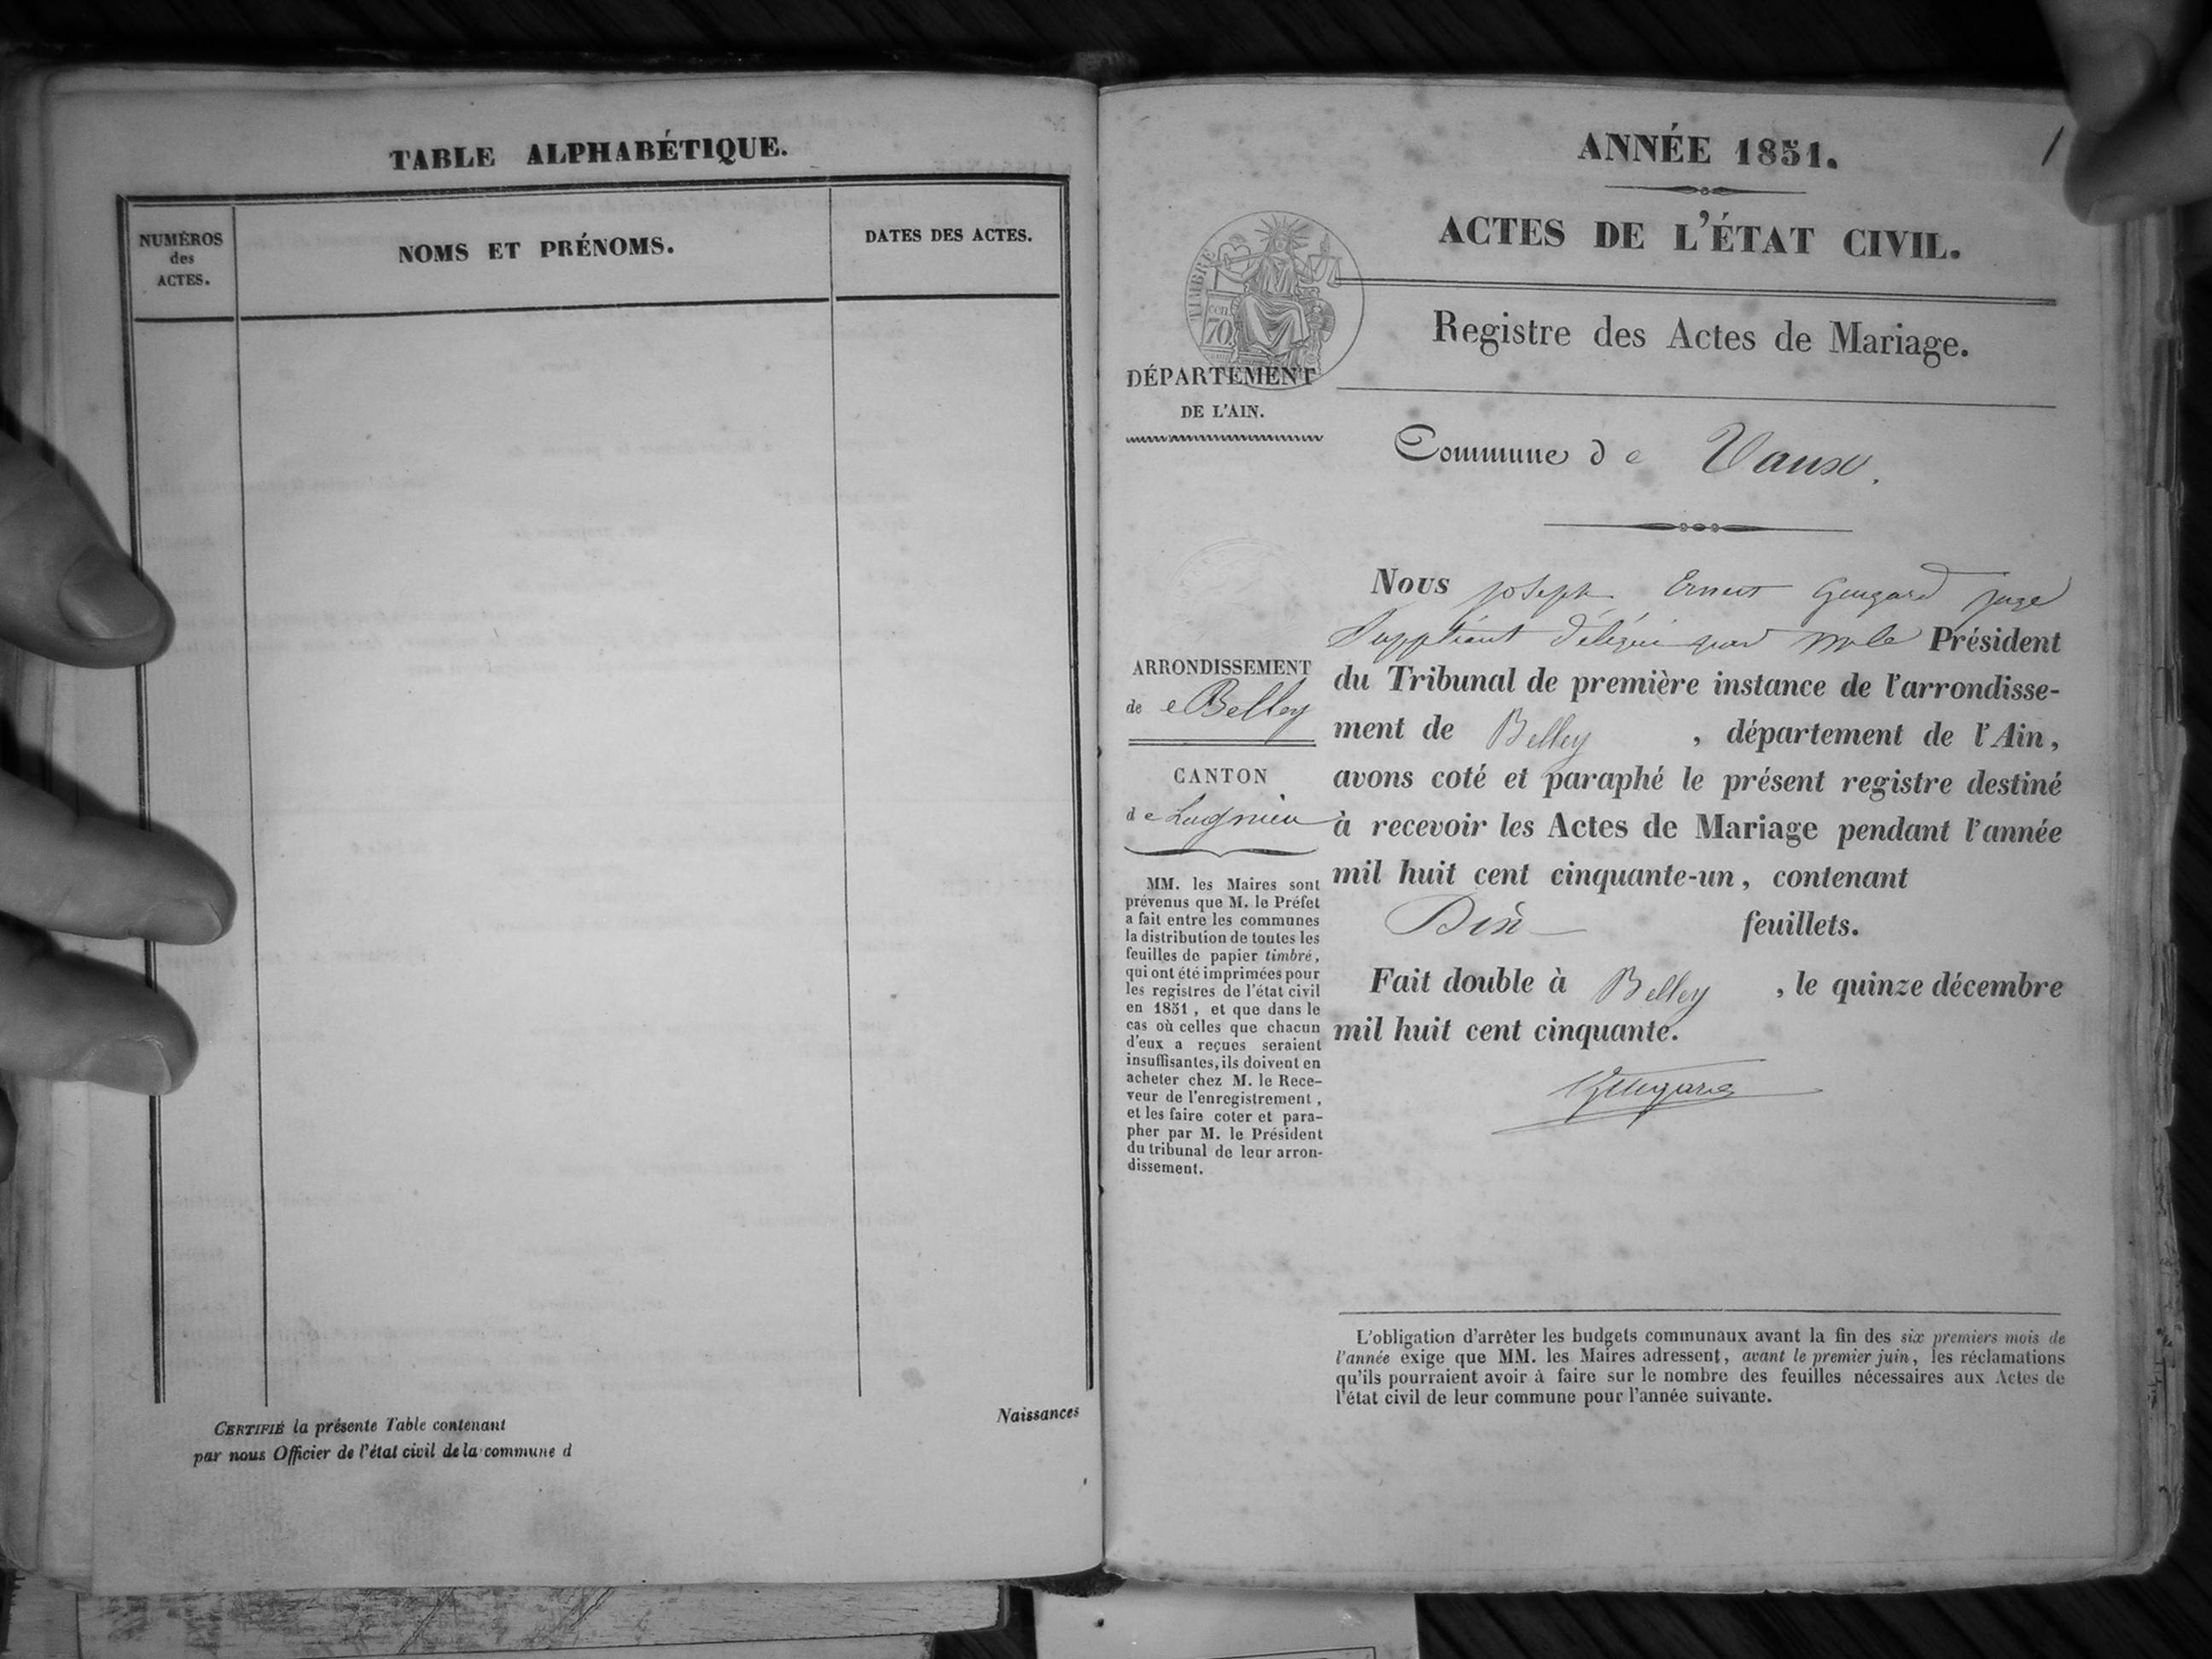 TABLE ALPHABÉTIQUE.
NUMÉROS
des
ACTES.
NOMS ET PRÉNOMS.
DATES DES ACTES.
CERTIFIÉ la présente Table contenant Naissances
par nous Officier de l'état civil de la commune d
1
ANNÉE 1851.
ACTES DE L'ÉTAT CIVIL.
TIMBRE
cen.
70
Registre des Actes de Mariage.
DÉPARTEMENT
DE L'AIN.
Commune de Vaux.
ARRONDISSEMENT
de Belley
CANTON
de Lagnieu
MM. les Maires sont
prévenus que M. le Préfet
a fait entre les communes
la distribution de toutes les
feuilles de papier timbré,
qui ont été imprimées pour
les registres de l'état civil
en 1851, et que dans le
cas où celles que chacun
d'eux a reçues seraient
insuffisantes, ils doivent en
acheter chez M. le Rece-
veur de l'enregistrement,
et les faire coter et para-
pher par M. le Président
du tribunal de leur arron-
dissement.
Nous joseph Ernest juge
Suppléant délégué par Mr le Président
du Tribunal de première instance de l'arrondisse-
ment de Belley, département de l'Ain,
avons coté et paraphé le présent registre destiné
à recevoir les Actes de Mariage pendant l'année
mil huit cent cinquante-un, contenant
Dix feuillets.
Fait double à Belley, le quinze décembre
mil huit cent cinquante.
L'obligation d'arrêter les budgets communaux avant la fin des six premiers mois de
l'année exige que MM. les Maires adressent, avant le premier juin, les réclamations
qu'ils pourraient avoir à faire sur le nombre des feuilles nécessaires aux Actes de
l'état civil de leur commune pour l'année suivante.